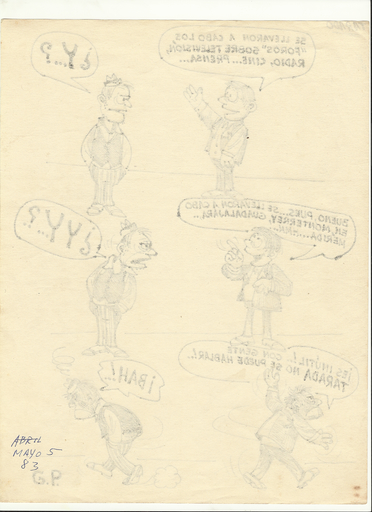 ¿Y...?
SE LLEVARON A CABO LOS
"FOROS" SOBRE TELEVISION,
RADIO, CINE...PRENSA...
¿YY...?
BUENO, PUES...SE LLEVARON A CABO
EN, MONTERREY, GUADALAJARA...
MERIDA...
¡BAH!
¡ES INUTIL!...CON GENTE
TARADA NO SE PUEDE HABLAR!
ABRIL
MAYO 5
83
G.P.